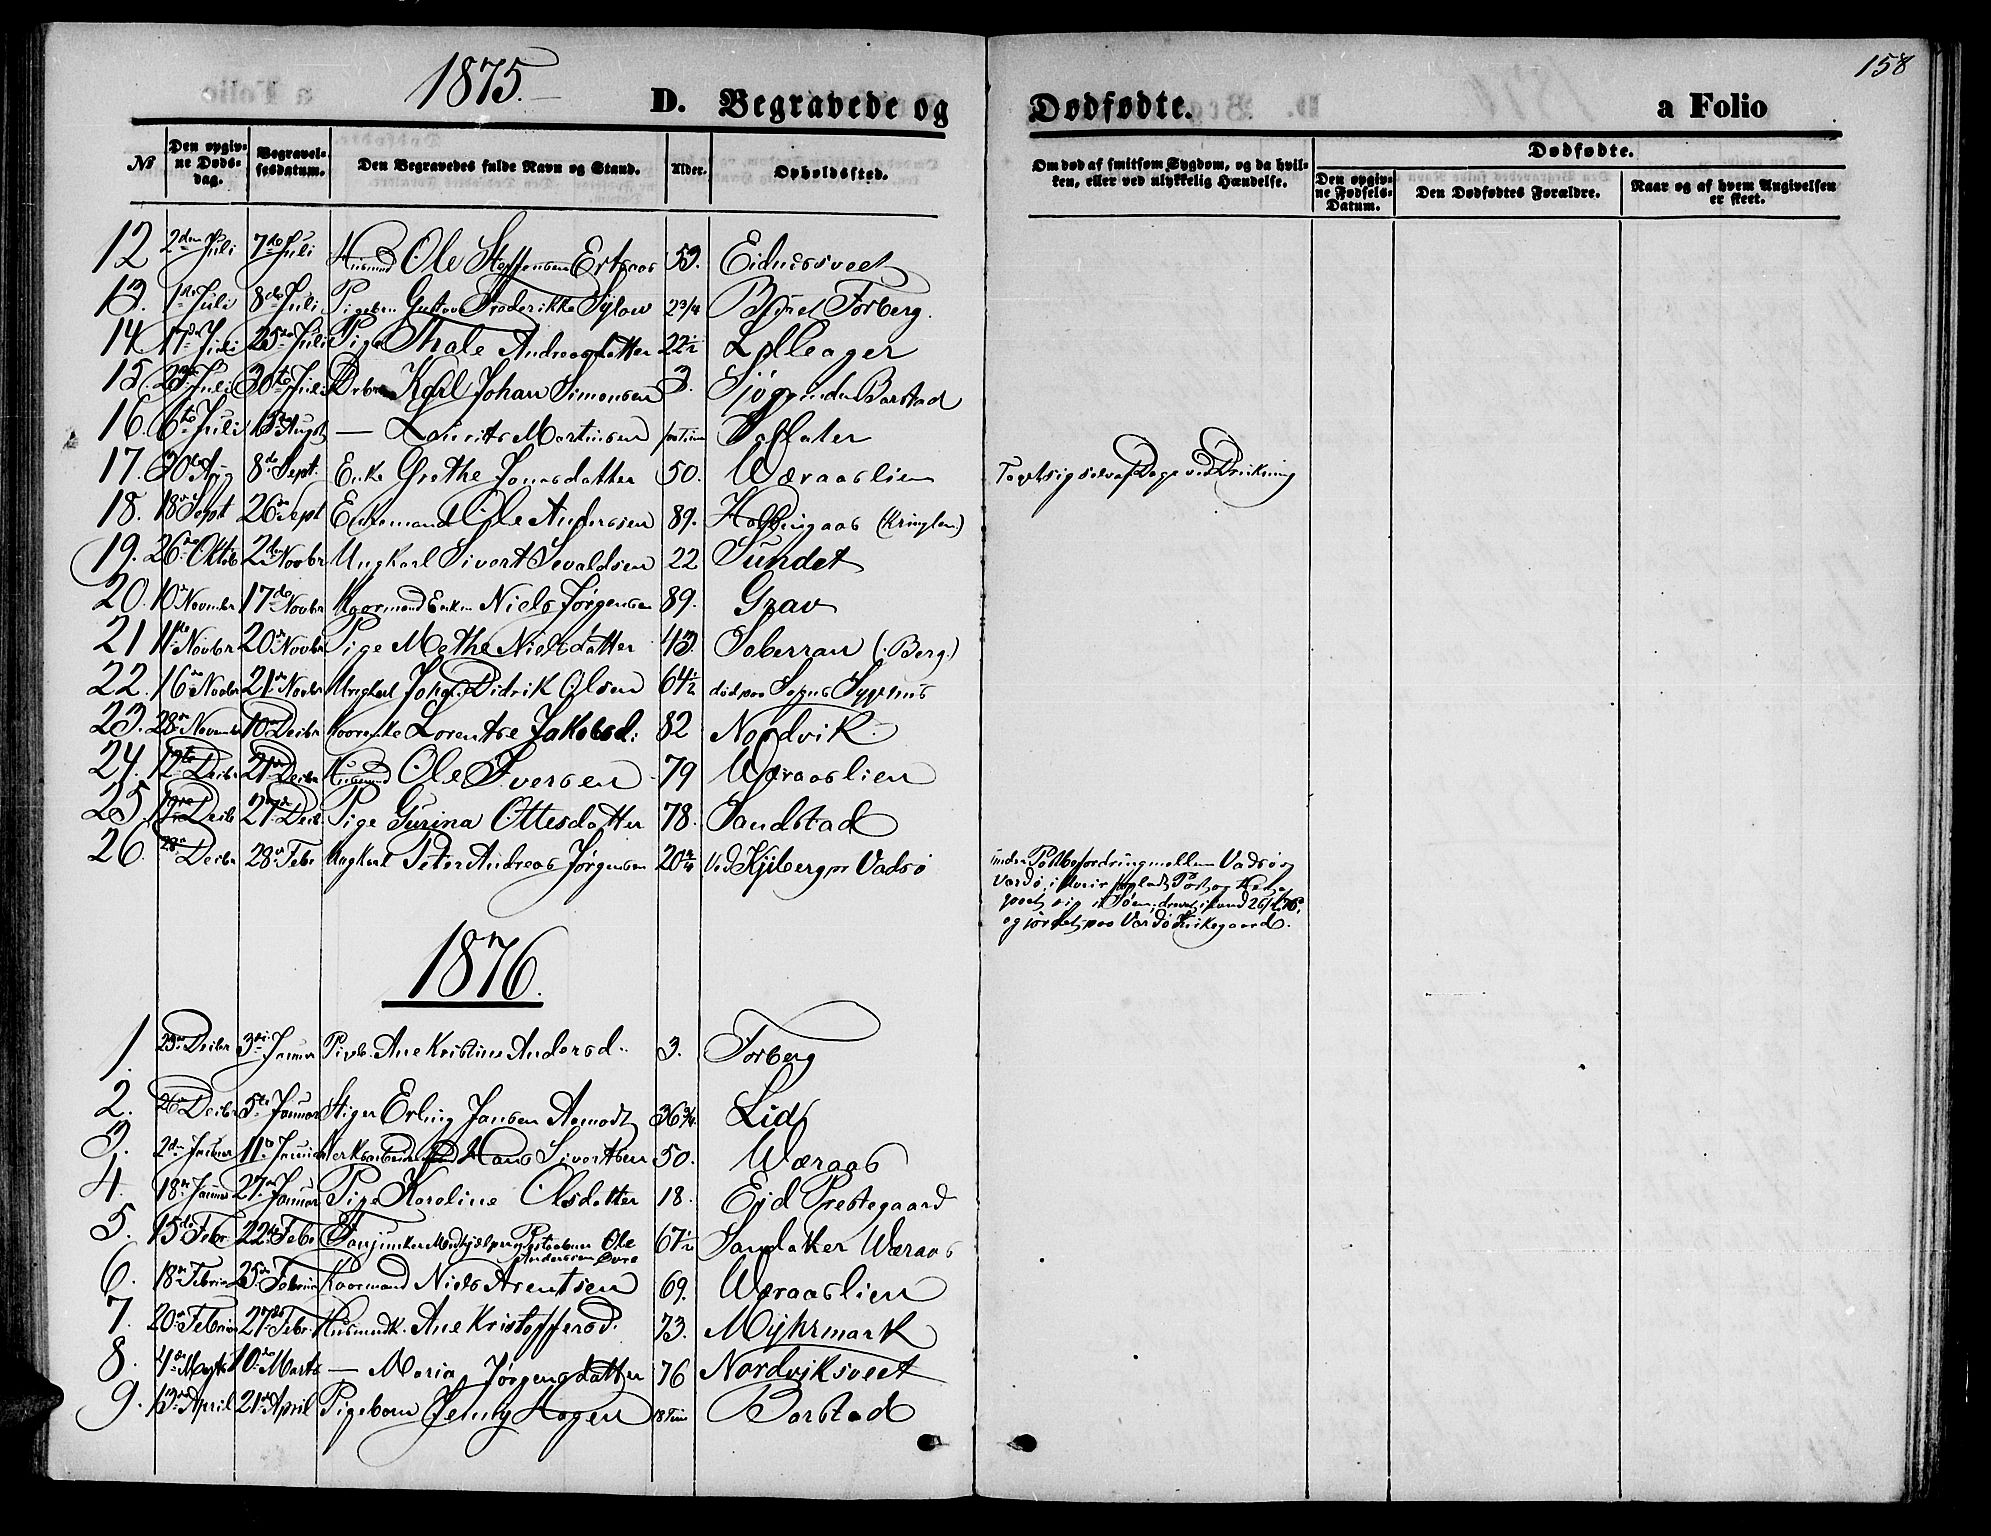 158
1875.
D. Begravede og Dødfødte. a Folio
No
Den opgivne Dødsdag.
Begravelsesdatum.
Den Begravedes fulde Navn og Stand.
Alder.
Opholdssted.
Om død af smitsom Sygdom, og da hvilken, eller ved ulykkelig Hændelse.
Dødfødte.
Den opgivne Fødsels-Datum.
Den Dødfødtes Forældre.
Naar og af hvem Angivelsen er skeet.
12 2den Juli 7de Juli Husmd Ole Steffensen 53.
13. 1ste Juli 8de Juli Pigebn Gustava Frederikke Sylow 2 3/4 Forberg.
14 17de Juli 25de Juli Pige Thale Andreasdatter 22 1/2 Lilleager
15. 23de Juli 30te Juli Drbrn Karl Johan Simonsen 3. Barstad
16. 6te Juli Augst — Laurits Martinsen
17. 30te Aug 8de Sept. Enke Grethe Jonasdatter 50. Wæraaslien selvaf Dage ved Drukning
18. 18de Sept 26de Sept Enkemand Ole Anderssen 89. (Kringlen)
19. 26de Oktbr 2den Novbr Ungkarl Sivert Sevaldsen 22 Sundet
20. 10de Novembr 17de Novbr Kaarmand Enkm Niels Jørgensen 89. Grav
21 11te Novbr 20de Novbr Pige Methe Nielsdatter 43. Saberran (Berg.)
22. 16de Novbr 21de Novbr Ungkarl Johan Didrik Olsen 64 1/2 død paa Sogns Sygehus
23. 28de Novembr 10de Decbr Kaarenke Lorentse Jakobsd: 82 Nordvik.
24. 12te Decbr 21de Decbr Husmd Ole Iversen 79 Wæraaslien
25. 19de Decbr 27de Decb Pige Gurina Ottesdatter 78. Sandstad
26. 28de Decbr 28de Febr Ungkarl Peter Andreas Jørgensen 20 Ved Kjiberg pr Vadsø
under Postbefordring mellem Vadsø og
Vardø,
sig i Søen; drevet island
og jordet paa Vardø Kirkegaard.
1876.
1. 25de Decbr 3die Januar Pigeb. Ane Kristine Andersd. 3. Forberg
2. 26de Decbr 5te Januar Stiger Erling Jansen Aamodt 36 3/4 Lid
3. 2den Januar 11te Januar Hans Sivertsen 50. Wæraas
4. 18de Januar 27de Januar Pige Karoline Olsdatter 18. Ejd Prestegaard
5. 15de Febr 22de Febr Ole Anderssen Øvre 67 1/2 Sandaker Wæraas
6. 18de Februar 25de Februar Kaarmand Niels Arentsen 69. Wæraaslien
7. 20de Februar 27de Febr. Husmdk. Ane Kristoffersd. 73. Myhrmark
8. 4de Marts 10de Marts — Maria Jørgensdatter 76 Nordviksveet
9. 13de April 21de April Pigebarn Jenny Hagen 18 Tim Barstad